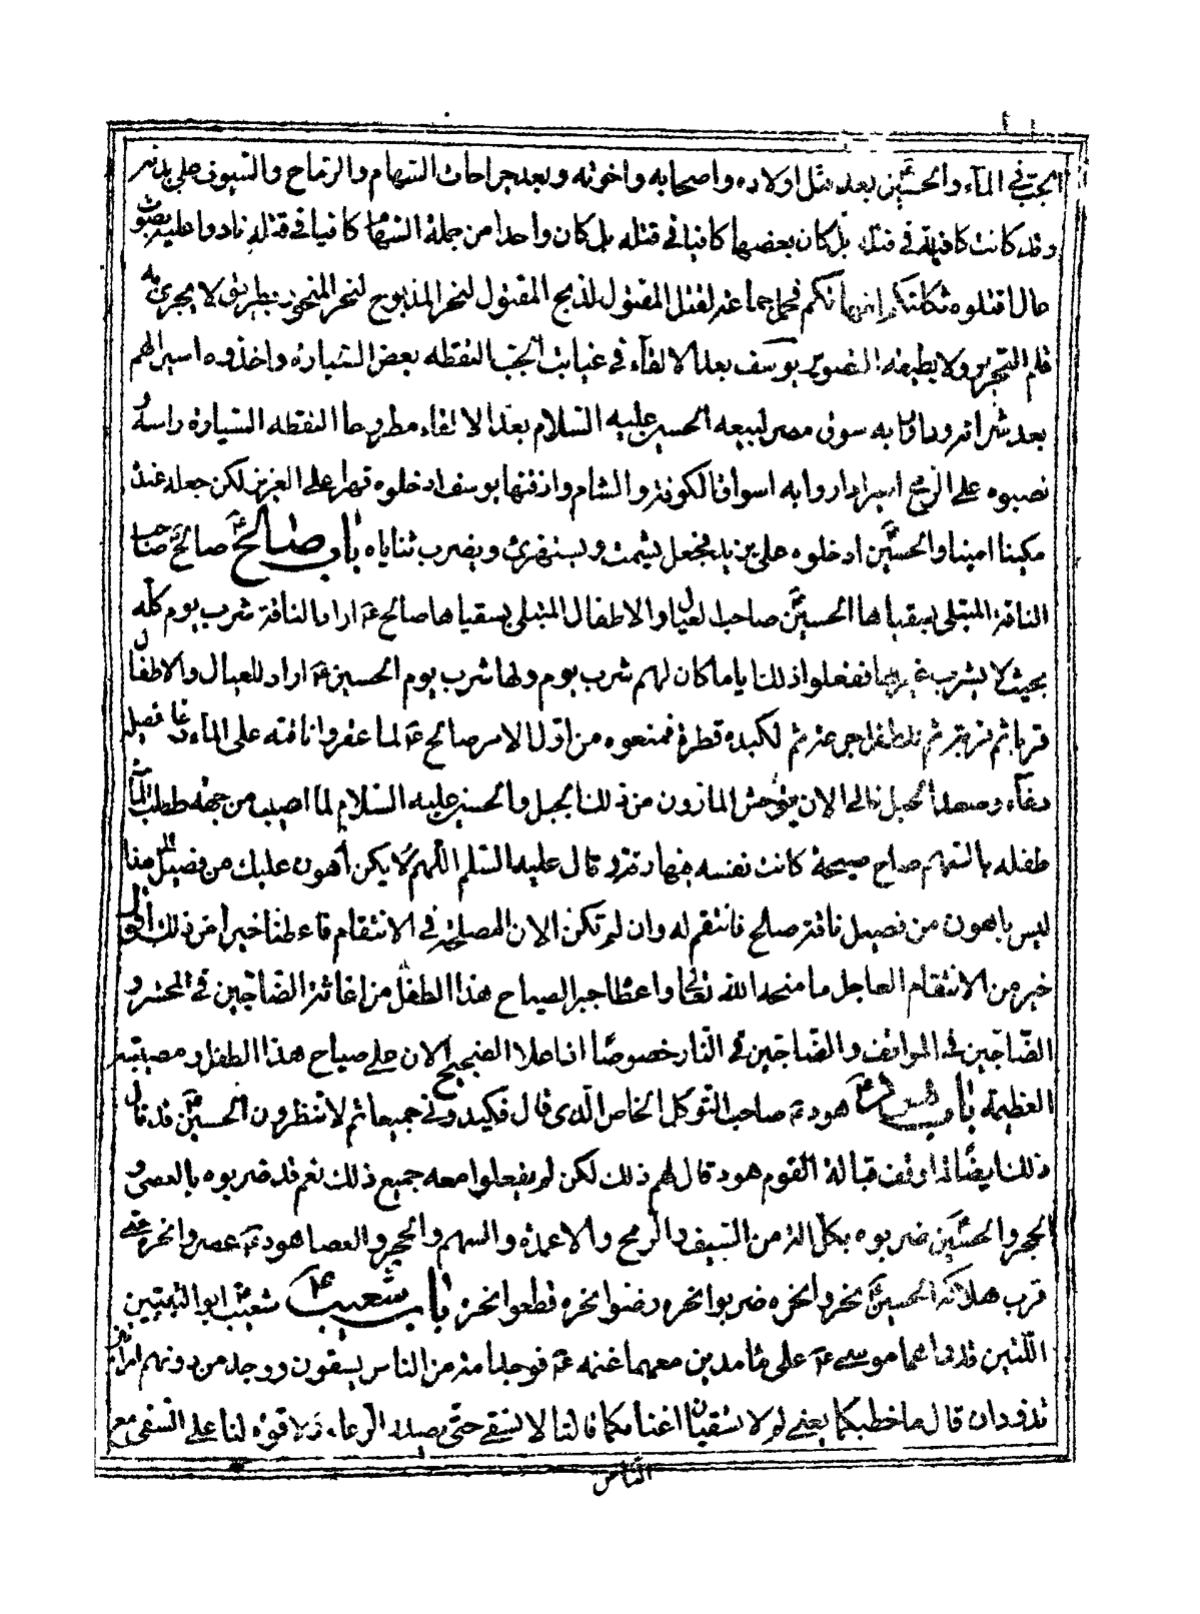 الجب في الماء والحسين بعد قتل اولاده واصحابه واخوته وبعد جراحات السهام والرماح والسيوف على بدنه
وقد كانت كافية في قتله بل كان بعضها كافيا في قتله بل كان واحدا من جملة السهام كافيا في قتله نادوا عليه بصوت
عال اقتلوه ثكلتكم امهاتكم فحمل جماعة لقتل المقتول لذبح المقتول لنحر المذبوح لنحر المنحور بطريق لا يجرى به
قلم التحرير ولا يطيقه التصوير يوسف بعد الالقاء في غيابت الجب التقطه بعض السيارة واخذوه اسيرا لهم
بعد شرائه وداروا به سوق مصر لبيعه الحسين عليه السلام بعد الالقاء مطروحا التقطه السيارة راسه و
نصبوه على الرمح اسيرا داروا به اسواق الكوفة والشام وازقتها يوسف ادخلوه قهرا على العزيز لكن جعله عنده
مكينا امينا والحسين ادخلوه على يزيد فجعل يشمت ويستهزئ ويضرب ثناياه باب صالح ع صالح ع صاحب
الناقة المبتلى بسقياها الحسين ع صاحب العيال والاطفال المبتلى بسقياها صالح ع اراد الناقة شرب يوم كله
بحيث لا يشرب غيرها ففعلوا ذلك اياما كان لهم شرب يوم ولها شرب يوم الحسين ع اراد للعيال والاطفال
قربا ثم قربة ثم للطفل جرعة ثم لكبده قطرة فمنعوه من اول الامر صالح ع لما عقروا ناقته على الماء دعا فصيله
دعاء وصعد الجبل فالى الان يتوحش المارون من ذلك الجبل والحسين عليه السلام لما اصيب من جهة طلب الماء
طفله بالسهم صاح صيحة كانت نفسه فيها وقد قال عليه السلم اللهم لا يكن اهون عليك من فصيل الى هذا
ليس باهون من فصيل ناقة صالح فانتقم له وان لم تكن الان المصلحة في الانتقام فاعطنا خيرا من ذلك الحق
خير من الانتقام العاجل ما منحه الله تعالى واعطا جبر الصياح هذا الطفل من اغاثة الضاجين في المحشر و
الضاجين في المواقف والضاجين في النار خصوصا اذا علا الضجيج الان على صياح هذا الطفل و مصيبته
العظيمة باب هود ع صاحب التوكل الخاص الذى قال فكيدونى جميعا ثم لا تنظرون الحسين ع قد قال
ذلك ايضا لما وقف قبالة القوم هود قال لهم ذلك لكن لم يفعلوا معه جميع ذلك نعم قد ضربوه بالعصى و
الحجر والحسين ضربوه بكل الة من السيف والرمح والاعمدة والسهم والحجر والعصا هود ع عصروا نحره حتى
قرب هلاكه الحسين ع نحروا نحره ضربوا نحره رضوا نحره قطعوا نحره باب شعيب ع شعيب ع ابو البنتين
اللتين راهما موسى ع على ماء مدين معهما غنمه ع فوجد امة من الناس يسقون ووجد من دونهم امراتين
تذودان قال ما خطبكما يعنى لم لا تسقيان اغنامكما قالتا لا نسقى حتى يصدر الرعاء ولا قوة لنا على السقى مع
الناس